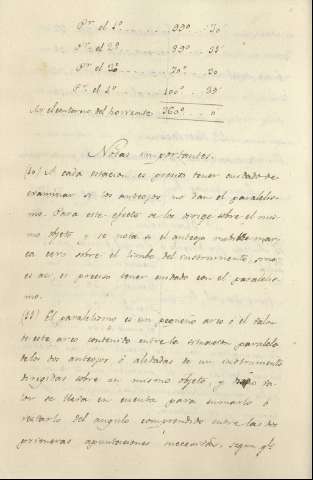 Pr. el 1º ...... 99º .. 30
Pr. el 2º ...... 89º .. 25
Pr. el 3º ...... 70º .. 30
Pr. el 4º ...... 100º .. 35
el contorno del horizonte 360º .. 0
Notas importantes.
(10) A cada estacion es preciso tener cuidado de
examinar si los anteojos no dan el paralelis-
mo. Para este efecto se los dirige sobre el mis-
mo objeto, y se nota si el anteojo mobil mar-
ca cero sobre el limbo del instrumento, sino
es asi, es preciso tener cuidado con el paralelis-
mo.
(11) El paralelismo es un pequeño arco ó el valor
de este arco contenido entre la situacion paralela
de los dos anteojos ó alidadas de un instrumento
dirigidas sobre un mismo objeto, y dicho va-
lor se lleva en cuenta para sumarlo ó
restarlo del angulo comprendido entre las dos
primeras apuntaciones necesarias, segun qe